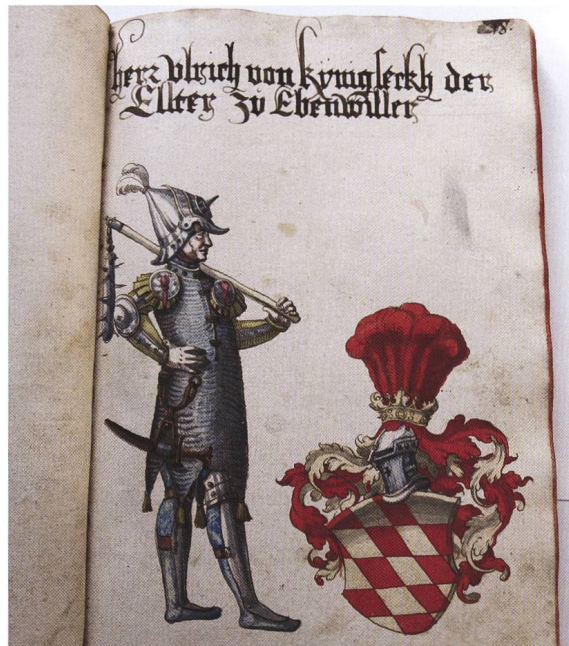 herr Ulrich von kynigseckh der
Ellter zu Ebenwiller